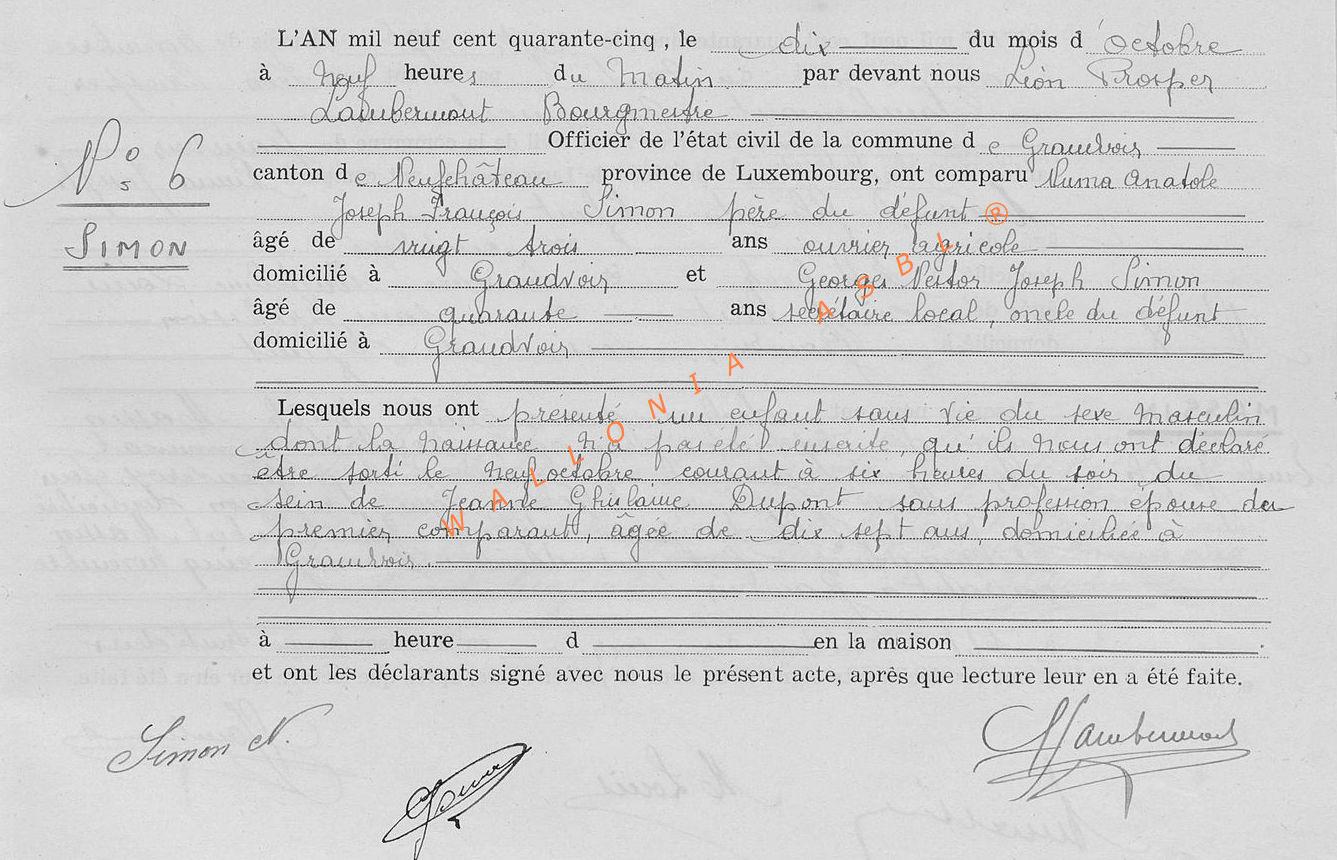 L'AN mil neuf cent quarante-cinq , le dix du mois d'Octobre
à Neuf heures du Matin par devant nous Léon Prosper
Lambermont Bourgmestre
Officier de l'état civil de la commune de Grandvoir
N° 6
canton de Neufchâteau province de Luxembourg, ont comparu Numa Anatole
Joseph François Simon père du défunt
SIMON
âgé de vingt trois ans ouvrier agricole
domicilié à Grandvoir et Georges Nestor Joseph Simon
âgé de quarante ans secrétaire local, oncle du défunt
domicilié à Grandvoir
Lesquels nous ont présenté un enfant sans vie du sexe masculin
dont la naissance n'a pas été inscrite, qu'ils nous ont déclaré
être sorti le neuf octobre courant à six heures du soir du
sein de Jeanne Ghislaine Dupont sans profession épouse du
premier comparant, âgée de dix sept ans, domiciliée à
Grandvoir.
à heure d en la maison
et ont les déclarants signé avec nous le présent acte, après que lecture leur en a été faite.
Simon N.
Lambermont
WALLONIA ASBL ®